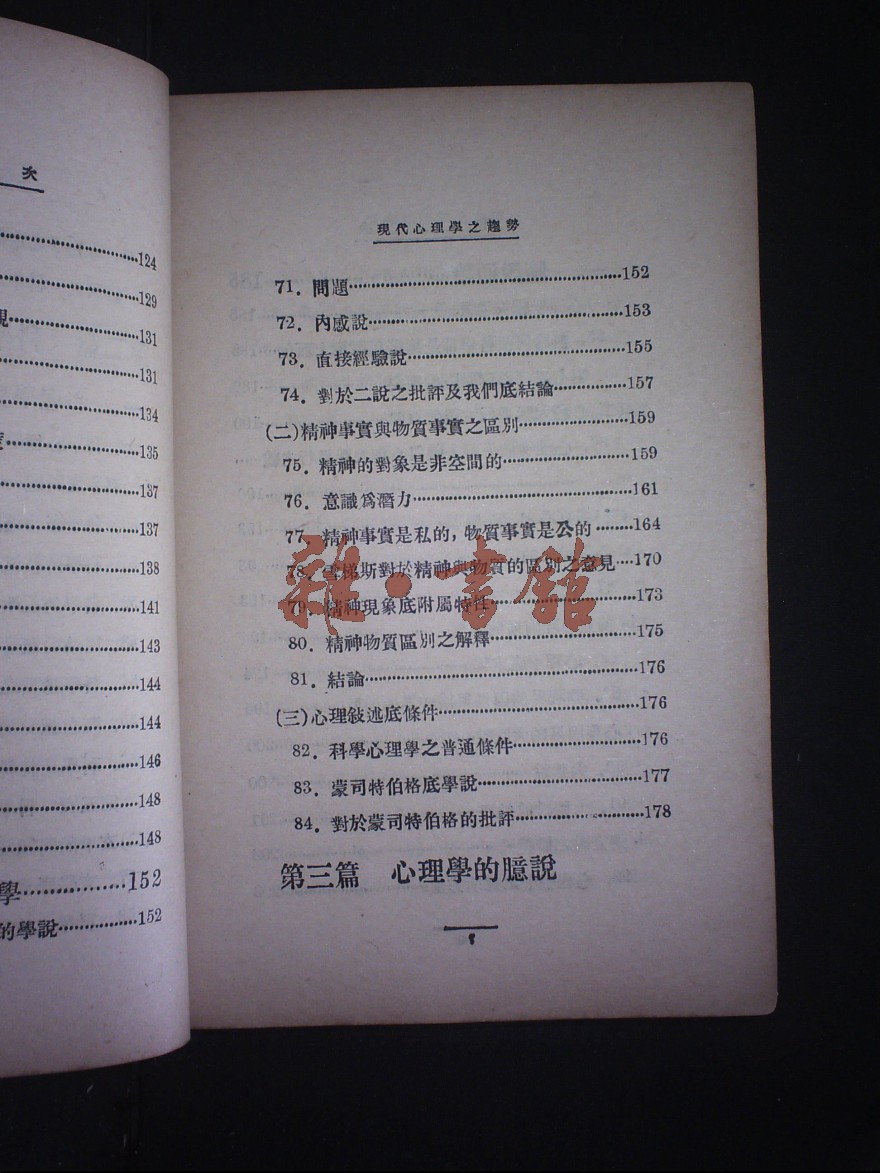 次
124
129
131
131
134
135
137
137
138
141
143
144
144
146
148
148
學……………152
的學說……………152
現代心理學之趨勢
71. 問題……………152
72. 內感說……………153
73. 直接經驗說……………155
74. 對於二說之批評及我們底結論……………157
(二)精神事實與物質事實之區別……………159
75. 精神的對象是非空間的……………159
76. 意識爲潛力……………161
77. 精神事實是私的，物質事實是公的……………164
78. 雪梯斯對於精神與物質的區別之意見……………170
79. 精神現象底附屬特性……………173
80. 精神物質區別之解釋……………175
81. 結論……………176
(三)心理敍述底條件……………176
82. 科學心理學之普通條件……………176
83. 蒙司特伯格底學說……………177
84. 對於蒙司特伯格的批評……………178
第三篇　心理學的臆說
雜·書館